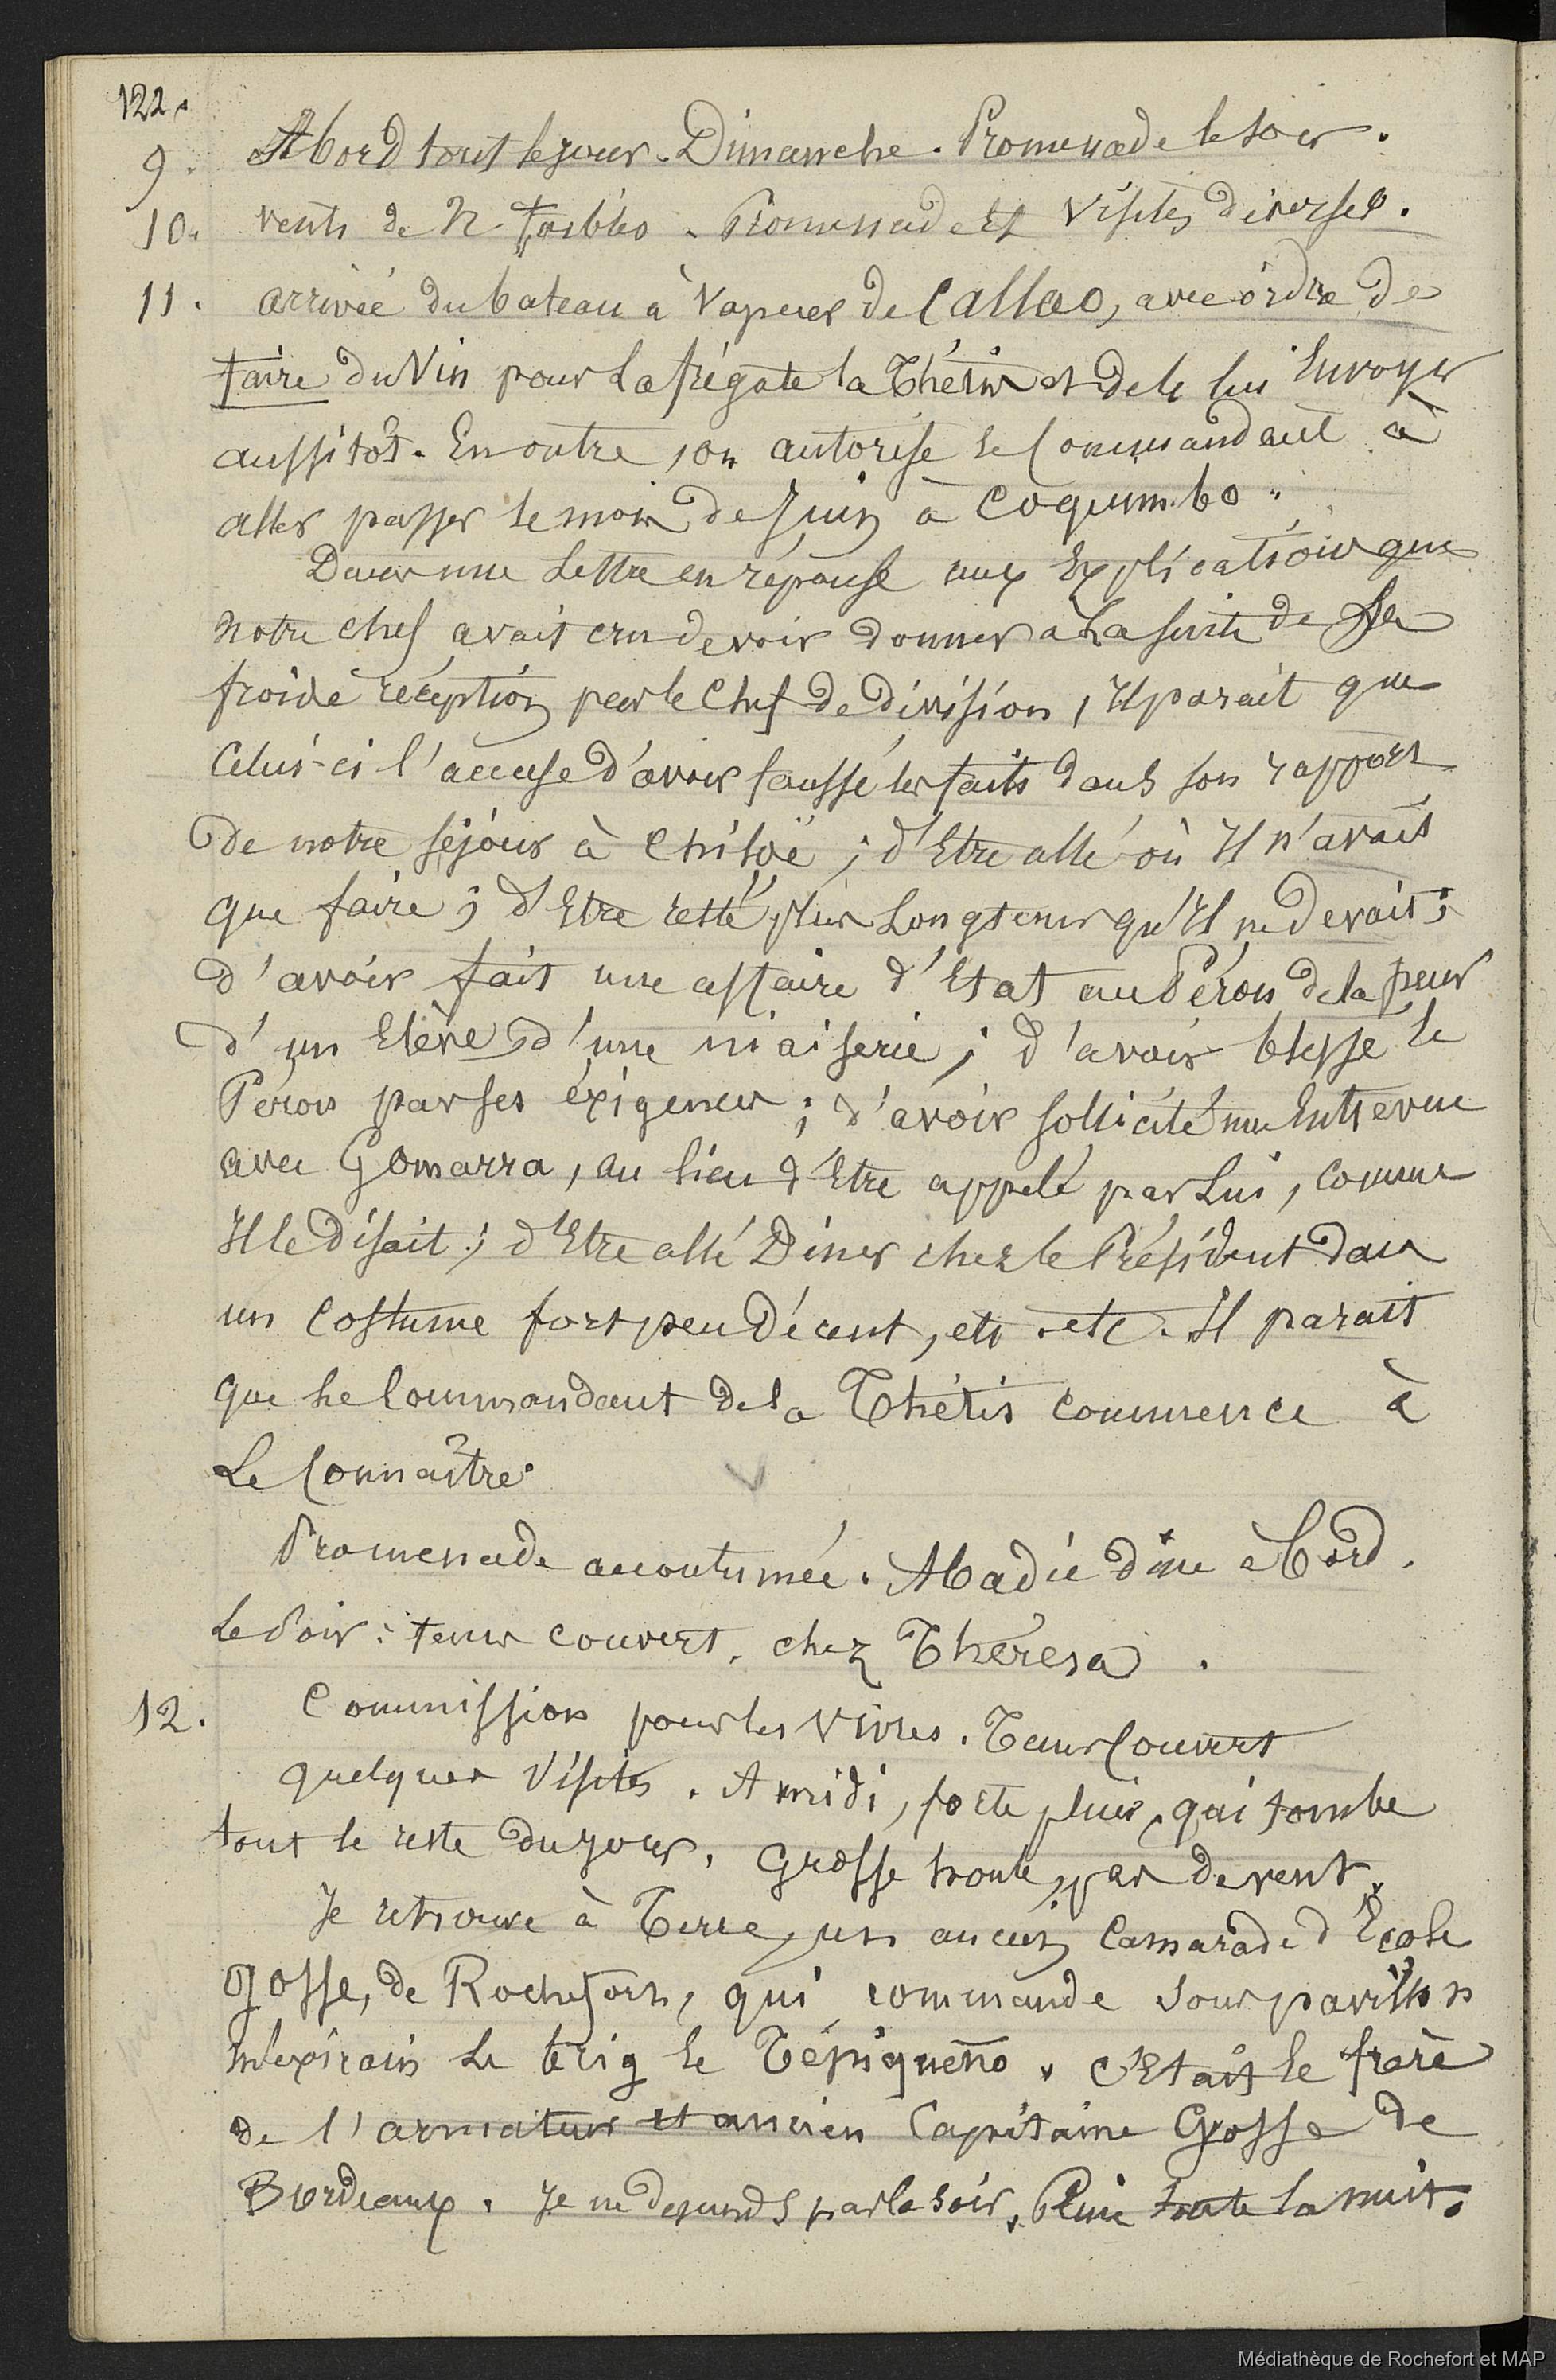 122.
9. A bord tout le jour. Dimanche. Promenade le soir.
10. vents de N faibles. Promenade et visites diverses.
11. arrivée du bateau à vapeur de Callao, avec ordre de
faire du vin pour la frégate la Thétis et de le lui Envoyer
aussitôt. En outre, on autorise le Commandant à
aller passer le mois de Juin à Coquimbo.
Dans une Lettre en réponse aux Explications que
notre chef avait cru devoir donner à La suite de Sa
froide réception par le Chef de division, Il parait que
Celui-ci l'accuse d'avoir faussé les faits dans son rapport
de notre séjour à Chiloë ; d'Etre allé où Il n'avait
que faire ; d'Etre resté plus Longtems qu'Il ne devait ;
d'avoir fait une affaire d'Etat au Pérou de la peur
d'un Elève, d'une niaiserie ; d'avoir blessé le
Pérou par ses éxigences ; d'avoir sollicité une Entrevue
avec Gomarra, au lieu d'Etre appelé par Lui, comme
Il le disait ; d'Etre allé Diner chez le Président dans
un Costume fort peu décent, etc. etc. Il parait
que le Commandant de la Thétis commence à
Le Connaître.
Promenade accoutumée. Abadie dine à Bord.
Le Soir : tems couvert. chez Thérésa.
12. Commission pour les vivres. Tems Couvert
quelques visites. A midi, forte pluie, qui tombe
tout le reste du jour. Grosse houle, pas de vent.
Je retrouve à Terre, un ancien Camarade d'Ecole
Gosse, de Rochefort, qui commande sous pavillon
méxicain le brig le Tépiqueño. C'Etait le frère
de l'armateur et ancien Capitaine Gosse de
Bordeaux. Je ne descends pas le soir. Pluie toute la nuit.
Médiathèque de Rochefort et MAP